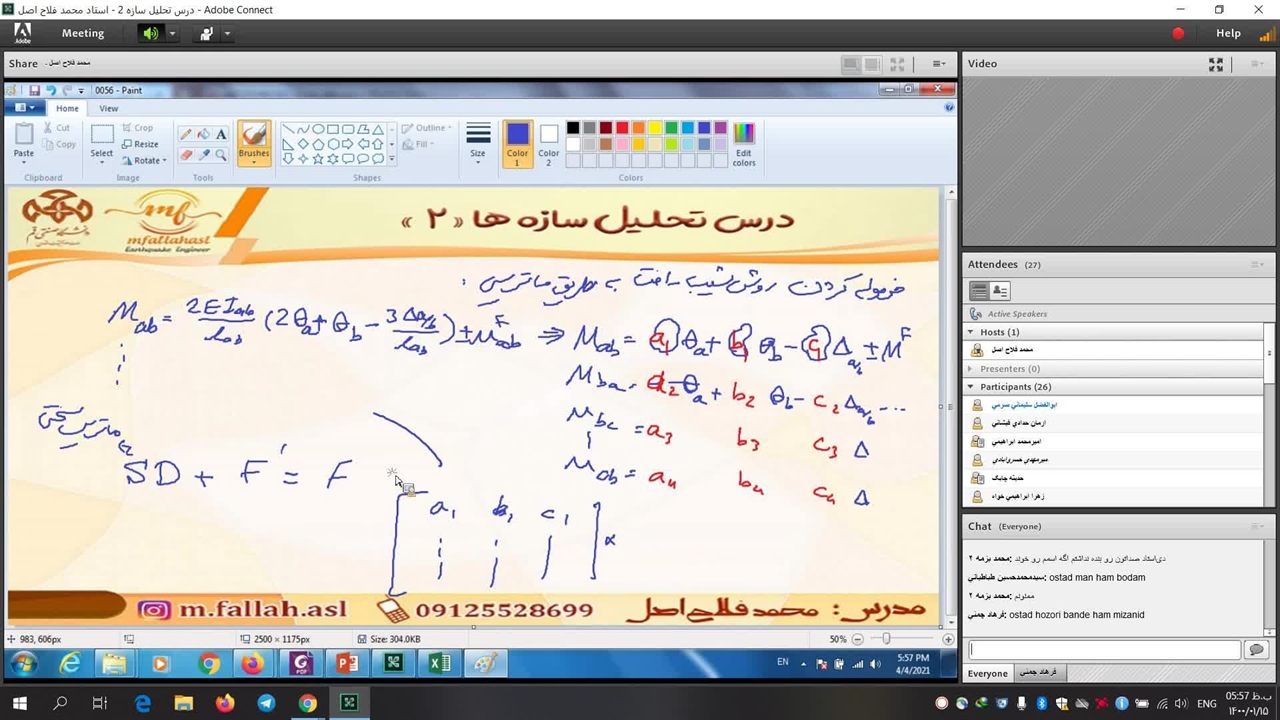 درس تحلیل سازه 2 - استاد محمد فلاح اصل - Adobe Connect
Meeting
Help
Share محمد فلاح اصل
0056 - Paint
Home View
Paste
Cut
Copy
Clipboard
Select
Crop
Resize
Rotate
Image
Tools
Brushes
Shapes
Outline
Fill
Size
Color 1
Color 2
Edit colors
Colors
mfallahasl
Earthquake Engineer
درس تحلیل سازه ها « ۲ »
فرموله کردن روش شیب افت به طریق ماتریسی :
M ab = 2EI ab / L ab (2θa + θb - 3Δa/b / L ab) ± M^F ab ⇒ M ab = a1 θa + b1 θb - c1 Δ a/b ± M^F
M ba = a2 θa + b2 θb - c2 Δ a/b ...
M bc = a3 b3 c3 Δ
M ab = a4 b4 c4 Δ
ماتریس سختی
SD + F' = F
a1 b1 c1
m.fallah.asl
09125528699
مدرس: محمدفلاح اصل
983, 606px
2500 × 1175px
Size: 304.0KB
50%
EN
5:57 PM
4/4/2021
Video
Attendees (27)
Active Speakers
Hosts (1)
محمد فلاح اصل
Presenters (0)
Participants (26)
ابوالفضل سلیماني سرمي
آرمان حدادي فیشاني
امیرمحمد ابراهیمي
میرمهدي خسروابادي
حدیثه چابک
زهرا ابراهیمي خواه
Chat (Everyone)
محمد بزمه ۲: دی‌استاد صداتون رو بنده نداشتم اگه اسمم رو خوند
سیدمحمدحسین طباطبائي: ostad man ham bodam
محمد بزمه ۲: ممنونم
فرهاد جمني: ostad hozori bande ham mizanid
Everyone فرهاد جمني
ENG
05:57 ب.ظ
۱۴۰۰/۰۱/۱۵